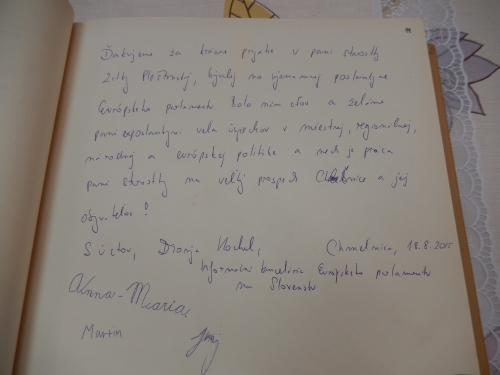 Ďakujeme za krásne prijatie v pani starostky
Zity Pleštinskej, bývalej no významnej poslankyne
Európskeho parlamentu. Bolo nám cťou a želáme
pani exposlankyni veľa úspechov v miestnej, regionálnej,
národnej a európskej politike a nech je práca
pani starostky na veľký prospech Chmeľnice a jej
obyvateľov!
S úctou,
Chmeľnica, 18.8.2015
Informačná kancelária Európskeho parlamentu
na Slovensku
Anna-Mária,
Martin